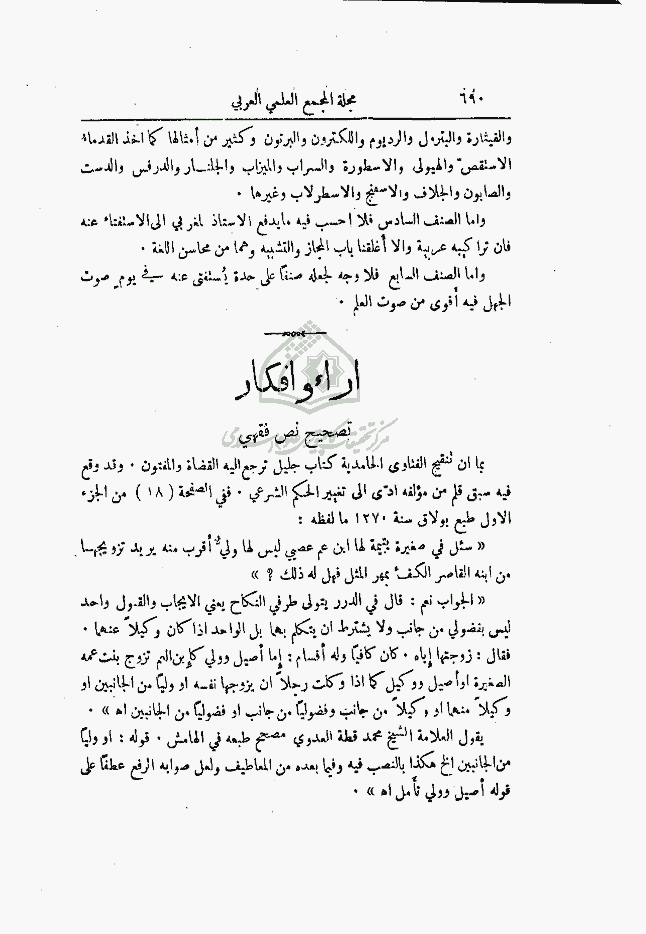 ٦٩٠ مجلة المجمع العلمي العربي
والقيثارة والبترول والرديوم واللكترون والبرتون وكثير من أمثالها كما اخذ القدماء
الاستقص والهيولى والاسطورة والسراب والميزاب والجلنـار والدرفس والدست
والصابون والجلاف والاسفنج والاسطرلاب وغيرها ٠
واما الصنف السادس فلا احسب فيه مايدفع الاستاذ المغربي الى الاستفتاء عنه
فان تراكيبه عربية والا أغلقنا باب المجاز والتشبيه وهما من محاسن اللغة ٠
واما الصنف السابع فلا وجه لجعله صنفاً على حدة يُستفتى عنه في يوم صوت
الجهل فيه أقوى من صوت العلم ٠
اراء وافكار
تصحيح نص فقهي
بما ان تنقيح الفتاوى الحامدية كتاب جليل ترجع اليه القضاة والمفتون ٠ وقد وقع
فيه سبق قلم من مؤلفه ادّى الى تغيير الحكم الشرعي ٠ ففي الصفحة ( ١٨ ) من الجزء
الاول طبع بولاق سنة ١٢٧٠ ما لفظه :
« سئل في صغيرة يتيمة لها ابن عم عصبي ليس لها وليٌّ أقرب منه يريد تزويجهـا
من ابنه القاصر الكفء بمهر المثل فهل له ذلك ؟ »
« الجواب نعم : قال في الدرر يتولى طرفي النكاح يعني الايجاب والقبول واحد
ليس بفضولي من جانب ولا يشترط ان يتكلم بهما بل الواحد اذا كان وكيلاً عنهما ٠
فقال : زوجتها إياه ٠ كان كافياً وله أقسام : إما أصيل وولي كابن العم تزوج بنت عمه
الصغيرة او أصيل ووكيل كما اذا وكلت رجلاً ان يزوجها نفسه او ولياً من الجانبين او
وكيلاً منهما او وكيلاً من جانب وفضولياً من جانب او فضولياً من الجانبين اه » ٠
يقول العلامة الشيخ محمد قطة العدوي مصحح طبعه في الهامش ٠ قوله : او ولياً
من الجانبين الخ هكذا بالنصب فيه وفيما بعده من المعاطيف ولعل صوابه الرفع عطفاً على
قوله أصيل وولي تأمل اه » ٠